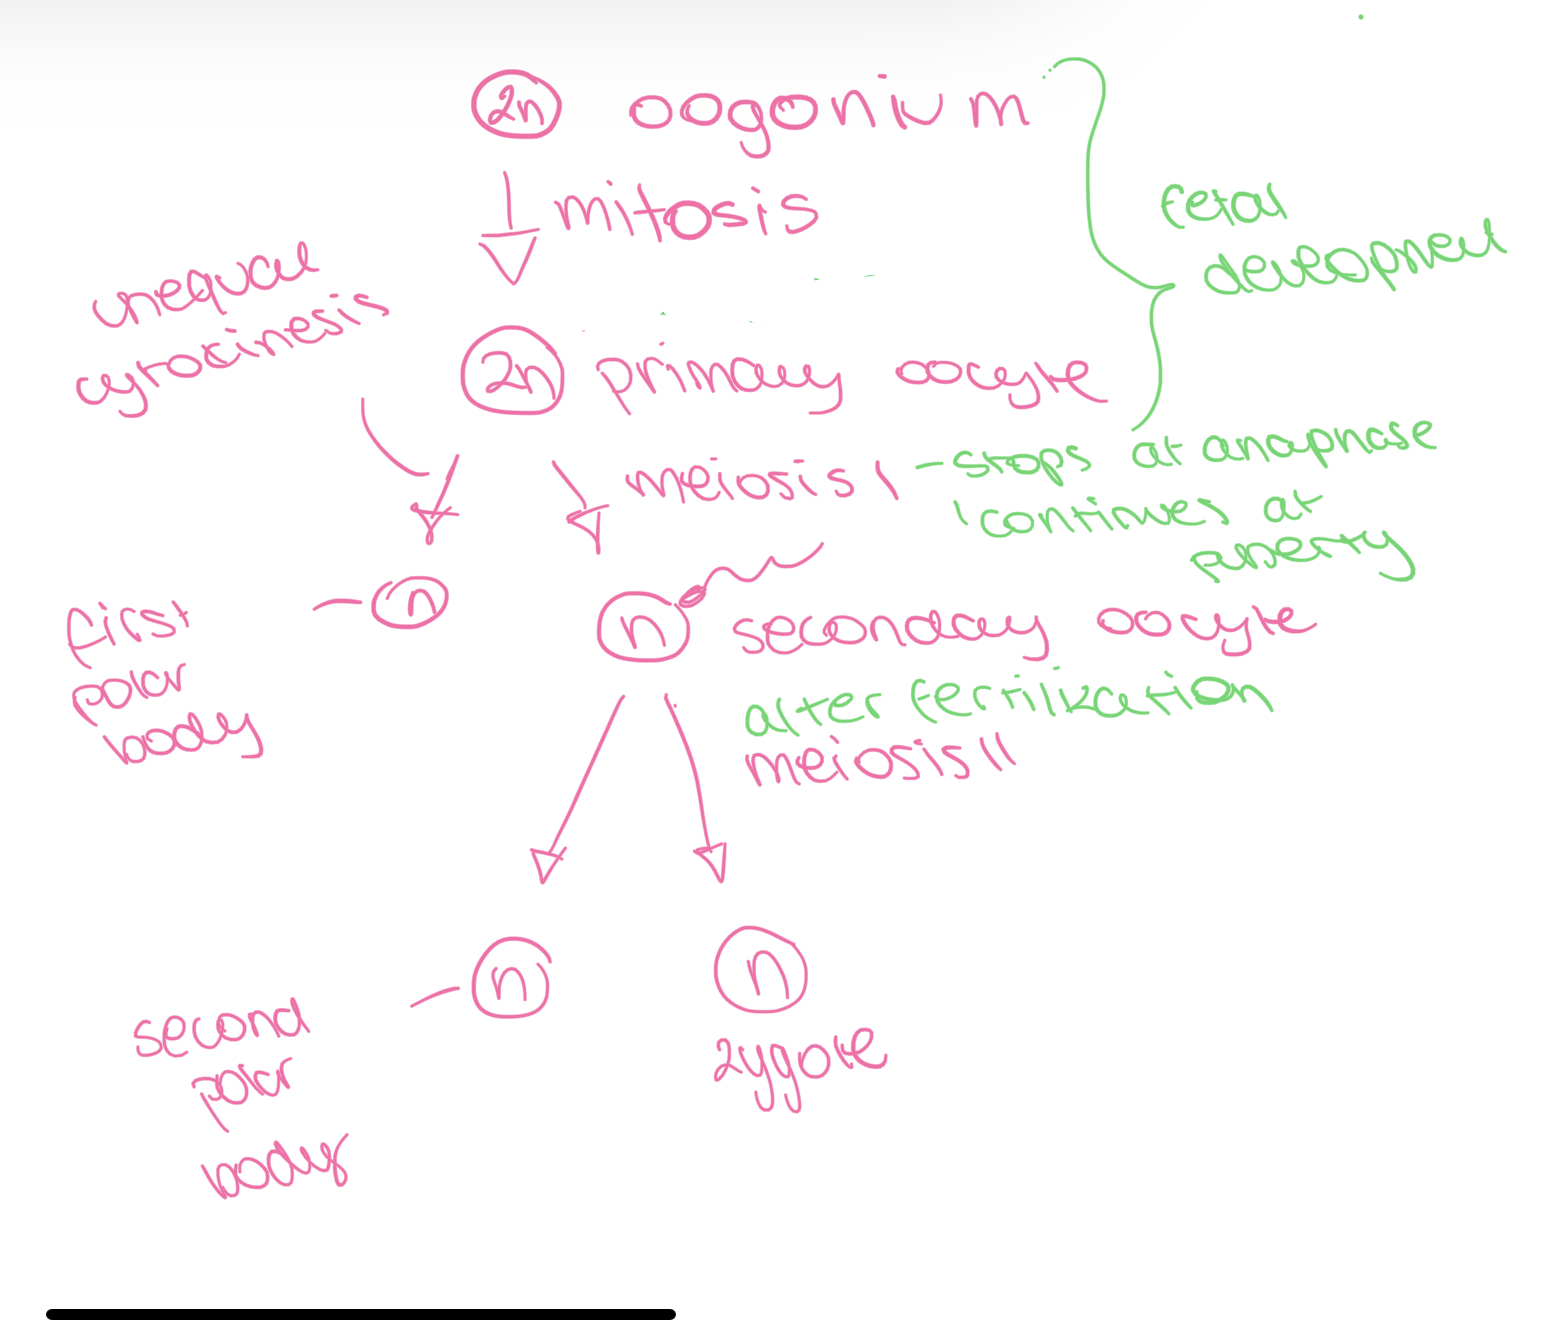 2n oogonium
mitosis
fetal
development
unequal
cytokinesis
2n primary oocyte
meiosis I - stops at anaphase
continues at
puberty
first
polar
body
n
n secondary oocyte
after fertilization
meiosis II
n
n
second
polar
body
zygote